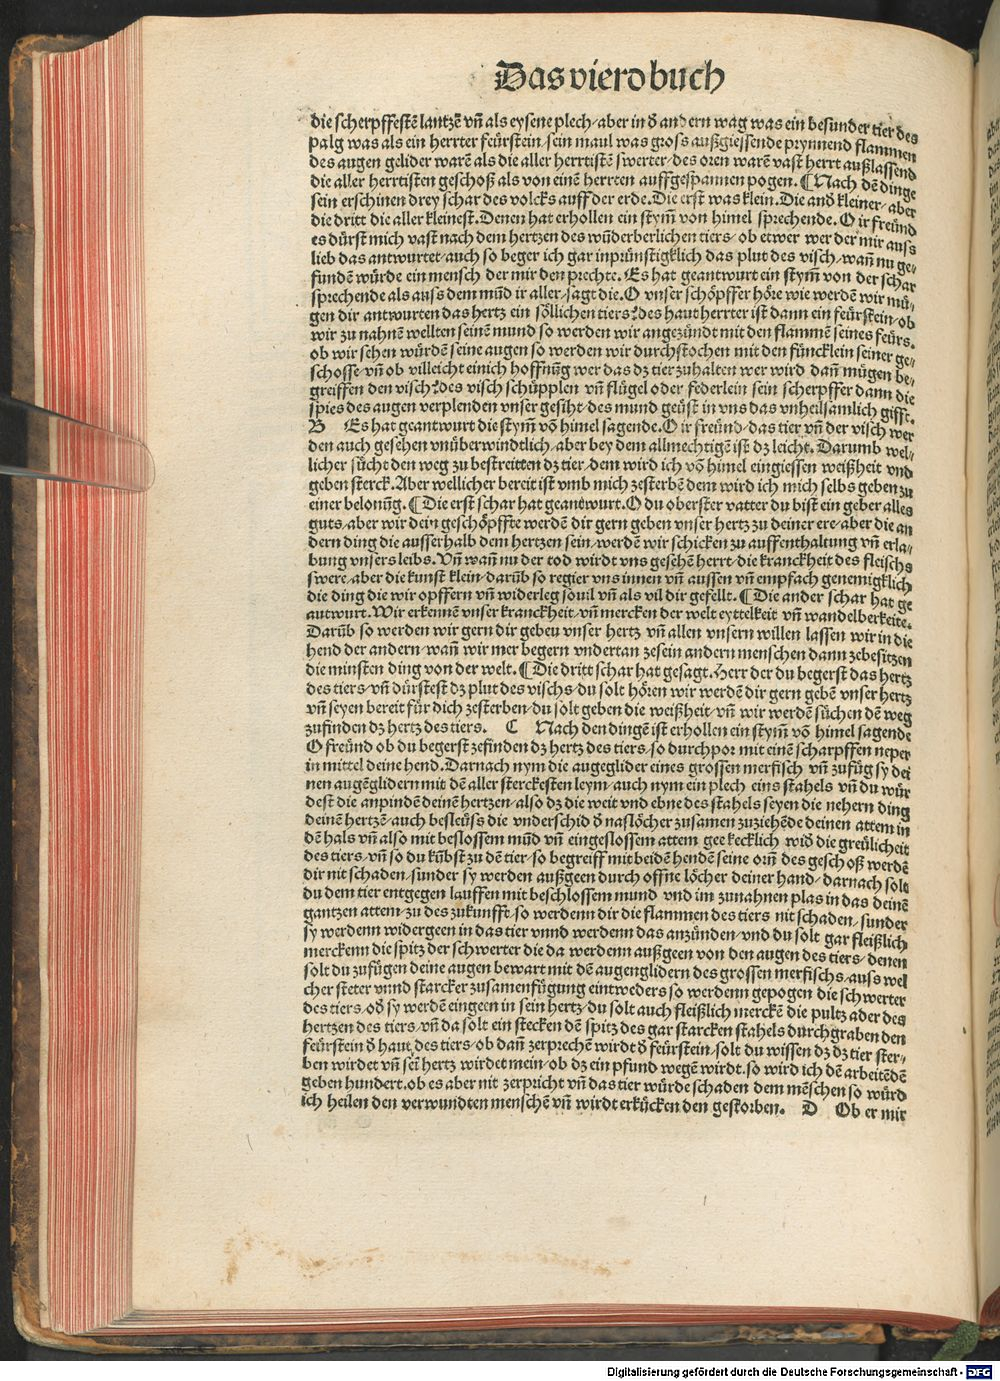 Das vierd buch
die scherpffestē lantzē vñ als eysene plech/aber in ð andern wag was ein besunder tier des
palg was als ein herrter feürstein/sein maul was gross außgiessende prynnend flammen
des augen gelider warē als die aller herrtistē swerter/des oren warē vast herrt außlassend
die aller herrtisten geschoß als von einē herrten auffgespannen pogen. ¶ Nach dē dinge
sein erschinen drey schar des volcks auff der erde. Die erst was klein. Die anð kleiner/aber
die dritt die aller kleinest. Denen hat erhollen ein stym̄ von himel sprechende. O ir freünd
es dürst mich vast nach dem hertzen des wūderberlichen tiers/ob etwer wer der mir auss
lieb das antwurtet/auch so beger ich gar inprünstigklich das plut des visch/wañ nu ge/
fundē würde ein mensch der mir den prechte. Es hat geantwurt ein stym̄ von der schar
sprechende als auss dem mūd ir aller/sagt die. O vnser schöpffer höre wie werdē wir mü/
gen dir antwurten das hertz ein söllichen tiers? des haut herrter ist dann ein feürstein/ob
wir zu nahnē wellten seinē mund so werden wir angezündt mit den flammē seines feürs.
ob wir sehen würdē seine augen so werden wir durchstochen mit den füncklein seiner ge/
schosse/vñ ob villeicht einich hoffnūg wer das dz tier zuhalten wer wird dañ mügen be/
greiffen den visch? des visch schüpplen vñ flügel oder federlein sein scherpffer dann die
spies des augen verplenden vnser gesiht/des mund geüst in vns das vnheilsamlich gifft.
B Es hat geantwurt die stym̄ vō himel sagende. O ir freünd/das tier vñ der visch wer
den auch gesehen vnüberwindtlich/aber bey dem allmechtigē ist dz leicht. Darumb wel/
licher sücht den weg zu bestreitten dz tier/dem wird ich vō himel eingiessen weißheit vnd
geben sterck. Aber wellicher bereit ist vmb mich zesterbē dem wird ich mich selbs geben zu
einer belonūg. ¶ Die erst schar hat geantwurt. O du oberster vatter du bist ein geber alles
guts/aber wir dein geschöpffte werdē dir gern geben vnser hertz zu deiner ere/aber die an
dern ding die ausserhalb dem hertzen sein/werdē wir schicken zu auffenthaltung vñ erla/
bung vnsers leibs. Vñ wañ nu der tod wirdt vns gesehē herrt/die kranckheit des fleischs
swere/aber die kunst klein/darūb so regier vns innen vñ aussen vñ empfach genemigklich
die ding die wir opffern vñ widerleg souil vñ als vil dir gefellt. ¶ Die ander schar hat ge
antwurt. Wir erkennē vnser kranckheit/vñ mercken der welt eyttelkeit vñ wandelberkeite.
Darūb so werden wir gern dir gebeu vnser hertz vñ allen vnsern willen lassen wir in die
hend der andern/wañ wir mer begern vndertan zesein andern menschen dann zebesitzen
die minsten ding von der welt. ¶ Die dritt schar hat gesagt. Herr der du begerst das hertz
des tiers/vñ dürstest dz plut des vischs/du solt hören wir werdē dir gern gebē vnser hertz
vñ seyen bereit für dich zesterben/du solt geben die weißheit/vñ wir werdē süchen dē weg
zufinden dz hertz des tiers. C Nach den dingē ist erhollen ein stym̄ vō himel sagende
O freünd ob du begerst zefinden dz hertz des tiers/so durchpor mit einē scharpffen neper
in mittel deine hend. Darnach nym die augeglider eines grossen merfisch vñ zufüg sy dei
nen augēglidern mit dē aller sterckesten leym/auch nym ein plech eins stahels vñ du wür
dest die anpindē deinē hertzen/also dz die weit vnd ebne des stahels seyen die nehern ding
deinē hertzē/auch besleüss die vnderschid ð naslöcher zusamen zuziehēde deinen attem in
dē hals vñ also mit beslossem mūd vñ eingeslossem attem gee kecklich wið die greülicheit
des tiers/vñ so du kūbst zu dē tier/so begreiff mit beidē hendē seine orñ des geschoß werdē
dir nit schaden/sunder sy werden außgeen durch offne löcher deiner hand/darnach solt
du dem tier entgegen lauffen mit beschlossem mund vnd im zunahnen plas in das deinē
gantzen attem/zu des zukunfft/so werdenn dir die flammen des tiers nit schaden/sunder
sy werdenn widergeen in das tier vnnd werdenn das anzünden/vnd du solt gar fleißlich
merckenn die spitz der schwerter die da werdenn außgeen von den augen des tiers/denen
solt du zufügen deine augen bewart mit dē augenglidern des grossen merfischs/auss wel
cher steter vnnd starcker zusamenfügung eintweders so werdenn gepogen die schwerter
des tiers/oð sy werdē eingeen in sein hertz/du solt auch fleißlich merckē die pultz ader des
hertzen des tiers/vñ da solt ein stecken dē spitz des gar starcken stahels durchgraben den
feürstein ð haut des tiers/ob dañ zerprechē wirdt ð feürstein/solt du wissen dz dz tier ster/
ben wirdet vñ sei hertz wirdet mein/ob dz ein pfund wegē wirdt. so wird ich dē arbeitēdē
geben hundert. ob es aber nit zerpricht vñ das tier würde schaden dem mēschen so würd
ich heilen den verwundten menschē vñ wirdt erkücken den gestorben. D Ob er mir
Digitalisierung gefördert durch die Deutsche Forschungsgemeinschaft - DFG